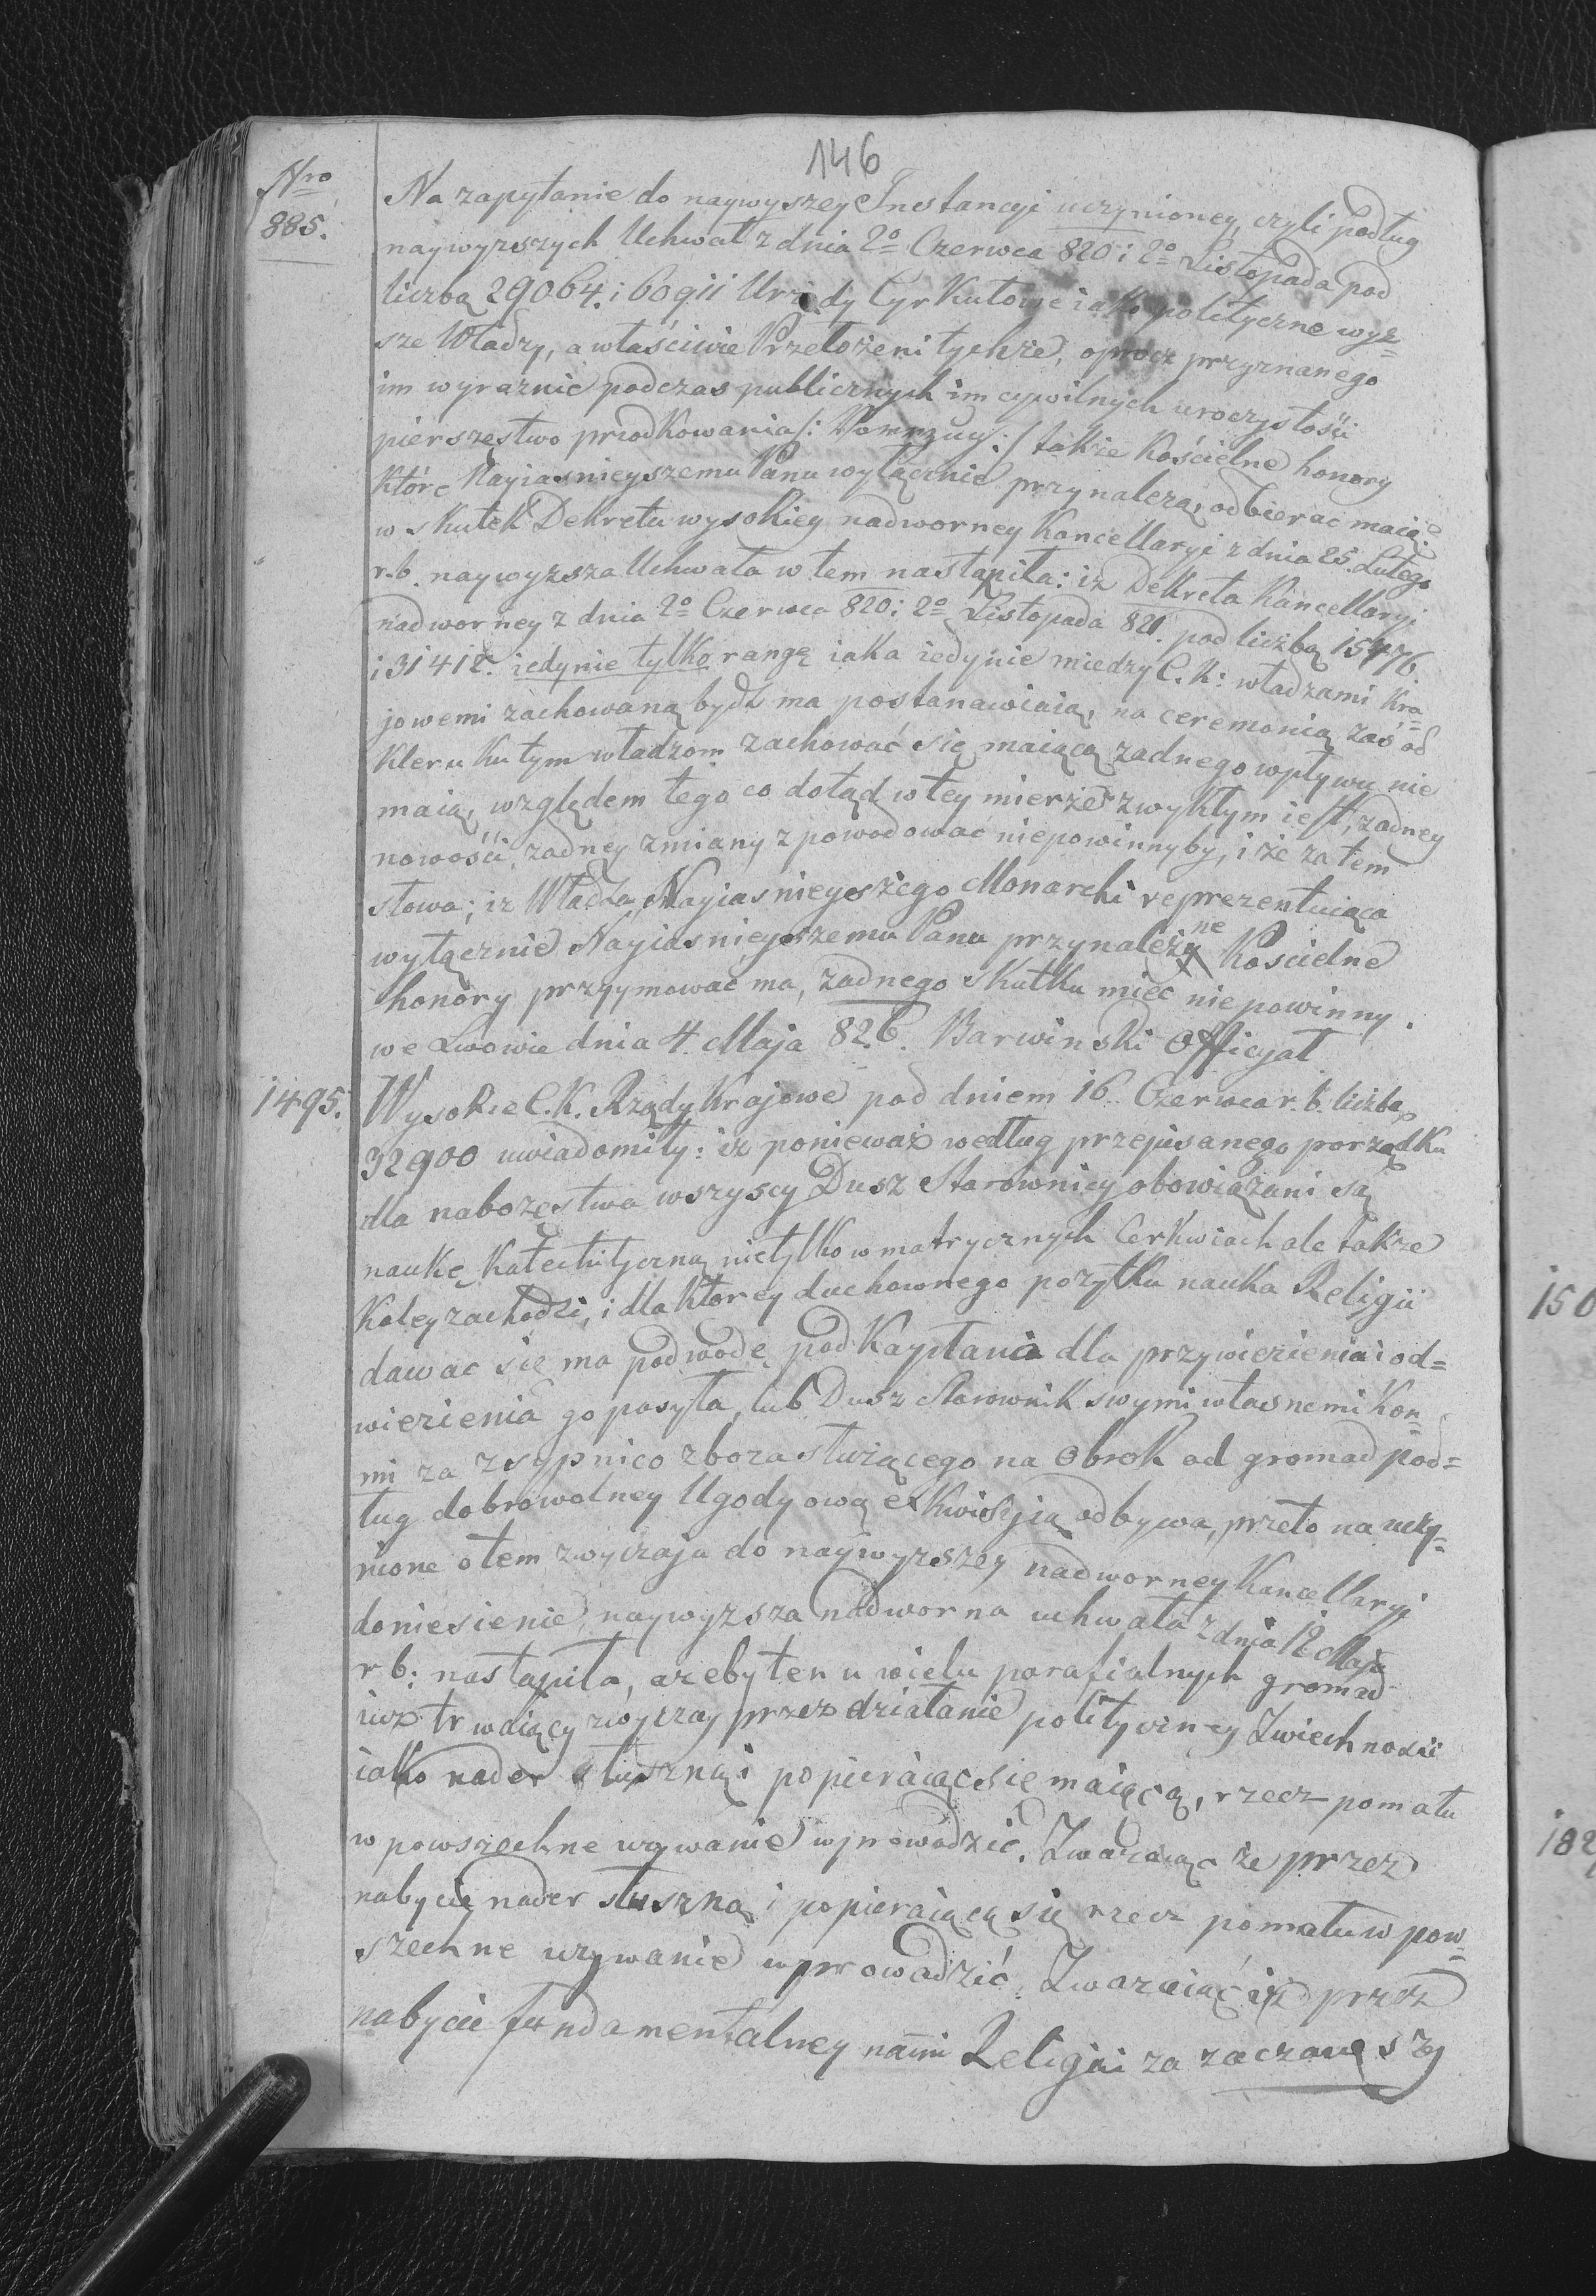 146
Nro
885.
Na zapytanie do naywyszey Instancyi uczynioney, czyli podług
naywyzszych Uchwał z dnia 2º Czerwca 820 i 2º Listopada pod
liczbą 29064. i 60911 Urzędy Cyrkułowe iako polityczne wyż=
sze Władzy, a właściwie Przełożeni tychże, oprócz przyznanego
im wyraznie podczas publicznych im cywilnych uroczystości
pierszęstwo przodkowania /: :/ także Kościelne honory
które Nayiasnieyszemu Panu wyłącznie przynależą, odbierac maią?
w skutek Dekretu wysokiey nadworney Kancellaryi z dnia 25. Lutego
r. b. naywyższa Uchwała w tem nastąpiła: iż Dekreta Kancellaryi
nadworney z dnia 2º Czerwca 820 i 2º Listopada 821. pod liczbą 15476.
i 31412. iedynie tylko rangę iaka iedynie miedzy C. K: władzami Kra=
jowemi zachowaną bydź ma postanawiaią, na ceremonią zaś od
Kleru ku tym władzom zachować się maiącą zadnego wpływu nie
maią, względem tego co dotąd w tey mierze zwykłym iest, zadney
nowości, zadney zmiany zpowodować niepowinnyby, i że zatem
słowa; iz Władza Nayiasnieyszego Monarchi reprezentuiąca
wyłącznie Nayiasnieyszemu Panu przynależne Koscielne
honory przyymować ma, zadnego skutku mieć niepowinny.
we Lwowie dnia 4. Maja 826. Barwinski Officyał
1495.
Wysokie C. K. Rządy Krajowe pod dniem 16. Czerwca r. b. liczbą
32900 uwiadomiły: iz ponieważ według przepisanego porządku
dla nabożęstwa wszyscy Dusz Starownicy obowiązani są
naukę Katechityczną nietylko w matrycznych Cerkwiach ale także
Koley zachodzi, i dla ktorey duchownego pożytku nauka Religii
dawać się ma podwodę pod Kapłana dla przywiezienia i od=
wiezienia go posyła, lub Dusz Starownik swymi własnemi Koń=
mi za zsypnico zboża służącego na Obrok od gromad pod=
ług dobrowolney Ugody ową exkwisyią odbywa, przeto na uczy=
nione o tem zwyczaju do naywyzszey nadworney Kancellaryi
doniesienie, naywyzsza nadworna uchwała z dnia 12 Maja
r b: nastąpiła, azeby ten u wielu parafialnych gromad
iuż trwaiący zwyczay przez działanie polityczney Zwiechnosci
iako nader słuszną i popieraiąc się maiącą, rzecz pomału
w powszechne uzywanie wprowadzić. Zwazaiąc że przez
nabycie nader słuszną i popieraiącą się rzecz pomału w pow=
szechne uzywanie wprowadzić. Zwazaiąc iż przez
nabycie fundamentalney Religii za
150
182